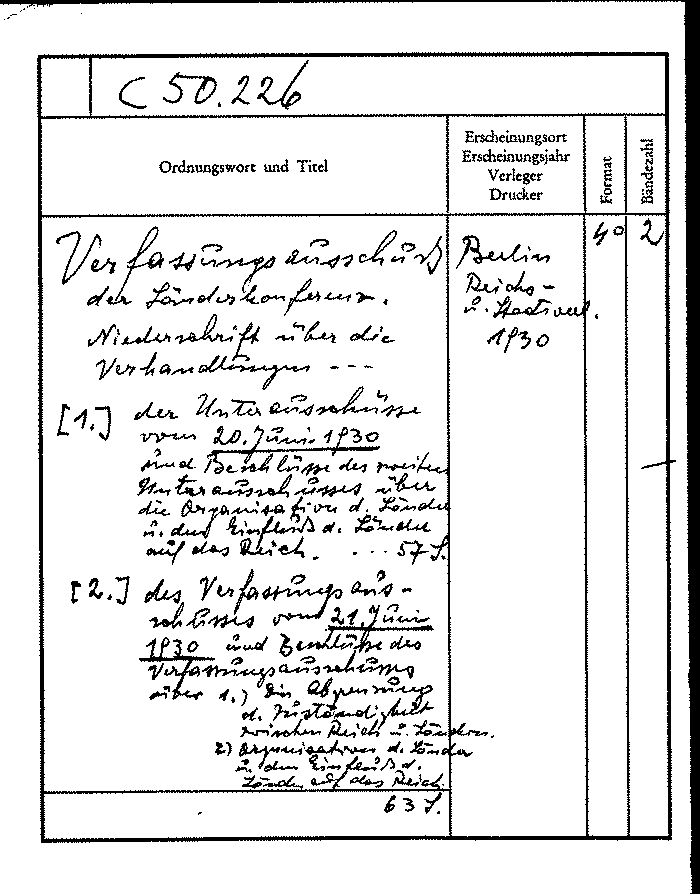 C 50.226
Ordnungswort und Titel
Erscheinungsort
Erscheinungsjahr
Verleger
Drucker
Format
Bändezahl
Verfassungsausschuß
der Länderkonferenz.
Niederschrift über die
Verhandlungen ---
[1.] der Unterausschüsse
vom 20. Juni 1930
und Beschlüsse des zweiten
Unterausschusses über
die Organisation d. Länder
u. den Einfluß d. Länder
auf das Reich. ... 57 S.
[2.] des Verfassungsaus-
schusses vom 21. Juni
1930 und Beschlüsse des
Verfassungsausschusses
über 1.) Die Abgrenzung
d. Zuständigkeit
zwischen Reich u. Ländern.
2) Organisation d. Länder
u. den Einfluß d.
Länder auf das Reich
63 S.
Berlin
Reichs-
u. Staatsverl.
1930
4°
2